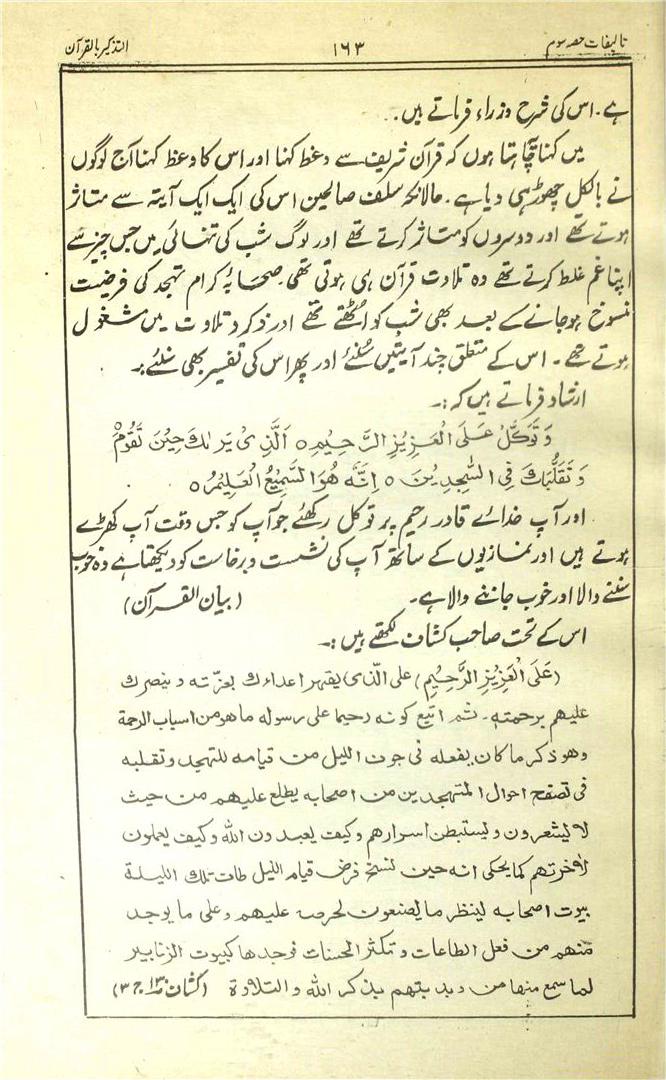 تالیفات حصہ سوم ۱۶۳ التذکیر بالقرآن
ہے۔ اس کی شرح وزراء فرماتے ہیں۔
میں کہنا چاہتا ہوں کہ قرآن شریف سے وعظ کہنا اور اس کا وعظ کہنا آج لوگوں
نے بالکل چھوڑ ہی دیا ہے۔ حالانکہ سلف صالحین اس کی ایک ایک آیتہ سے متاثر
ہوتے تھے اور دوسروں کو متاثر کرتے تھے اور لوگ شب کی تنہائی میں جس چیز سے
اپنا غم غلط کرتے تھے وہ تلاوت قرآن ہی ہوتی تھی۔ صحابۂ کرام تہجد کی فرضیت
منسوخ ہو جانے کے بعد بھی شب کو اُٹھتے تھے اور ذکر و تلاوت میں مشغول
ہوتے تھے۔ اس کے متعلق چند آیتیں سُنئے اور پھر اس کی تفسیر بھی سُنئے:۔
ارشاد فرماتے ہیں کہ:۔
وَتَوَكَّلْ عَلَى الْعَزِيْزِ الرَّحِيْمِ ٥ اَلَّذِىْ يَرٰىكَ حِيْنَ تَقُوْمُ
وَتَقَلُّبَكَ فِى السّٰجِدِيْنَ ٥ اِنَّهٗ هُوَ السَّمِيْعُ الْعَلِيْمُ ٥
اور آپ خدائے قادر رحیم پر توکل رکھئے جو آپ کو جس وقت آپ کھڑے
ہوتے ہیں اور نمازیوں کے ساتھ آپ کی نشست و برخاست کو دیکھتا ہے وہ خوب
سننے والا اور خوب جاننے والا ہے۔ (بیان القرآن)
اس کے تحت صاحب کشاف لکھتے ہیں:۔
(عَلَى الْعَزِيْزِ الرَّحِيْمِ) على الذى يقهر اعداءك بعزته وينصرك
عليهم برحمته۔ ثم اتبع كونه رحيما على رسوله ما هو من اسباب الرحمة
وهو ذكر ما كان يفعله فى جوف الليل من قيامه للتهجد وتقلبه
فى تصفح احوال المتهجدين من اصحابه يطلع عليهم من حيث
لا يشعرون وليستبطن اسرارهم وكيف يعبدون الله وكيف يعملون
لآخرتهم كما يحكى انه حين نسخ فرض قيام الليل طاف تلك الليلة
بيوت اصحابه لينظر ما يصنعون لحرصه عليهم وعلى ما يوجد
منهم من فعل الطاعات وتكثر الحسنات فوجدها كبيوت الزنابير
لما سمع منها من دندنتهم بذكر الله والتلاوة (کشاف ج ۳)